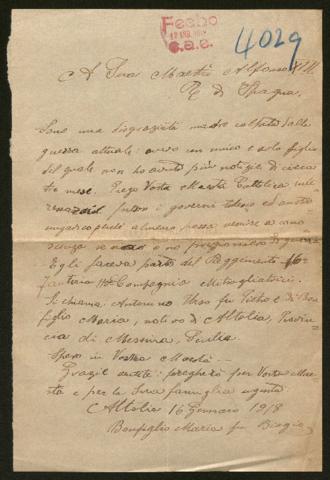 Fecho
S.a.e.
4029
A Sua Maestà Alfonso XIII
Re di Spagna,
Sono una disgraziata madre colpita dalla
guerra attuale: avevo un unico e solo figlio
del quale non ho avuto più notizie di circa
tre mesi. Prego Vostra Maestà Cattolica
i governi e austro
ungarico
se o no prigioniero di guerra
Egli faceva parte del Reggimento
fanteria Compagnia Mitragliatrici.
Si chiama Antonino fu Pietro e di Bon
figlio Maria, nativo di Altolia, Provin
cia di Messina, Sicilia.
Spero in Vostra Maestà.
Grazie pregherò per Vostra Mae
stà e per la Sua famiglia augusta
Altolia 16 Gennaro 1918
Bonfiglio Maria fu Biagio